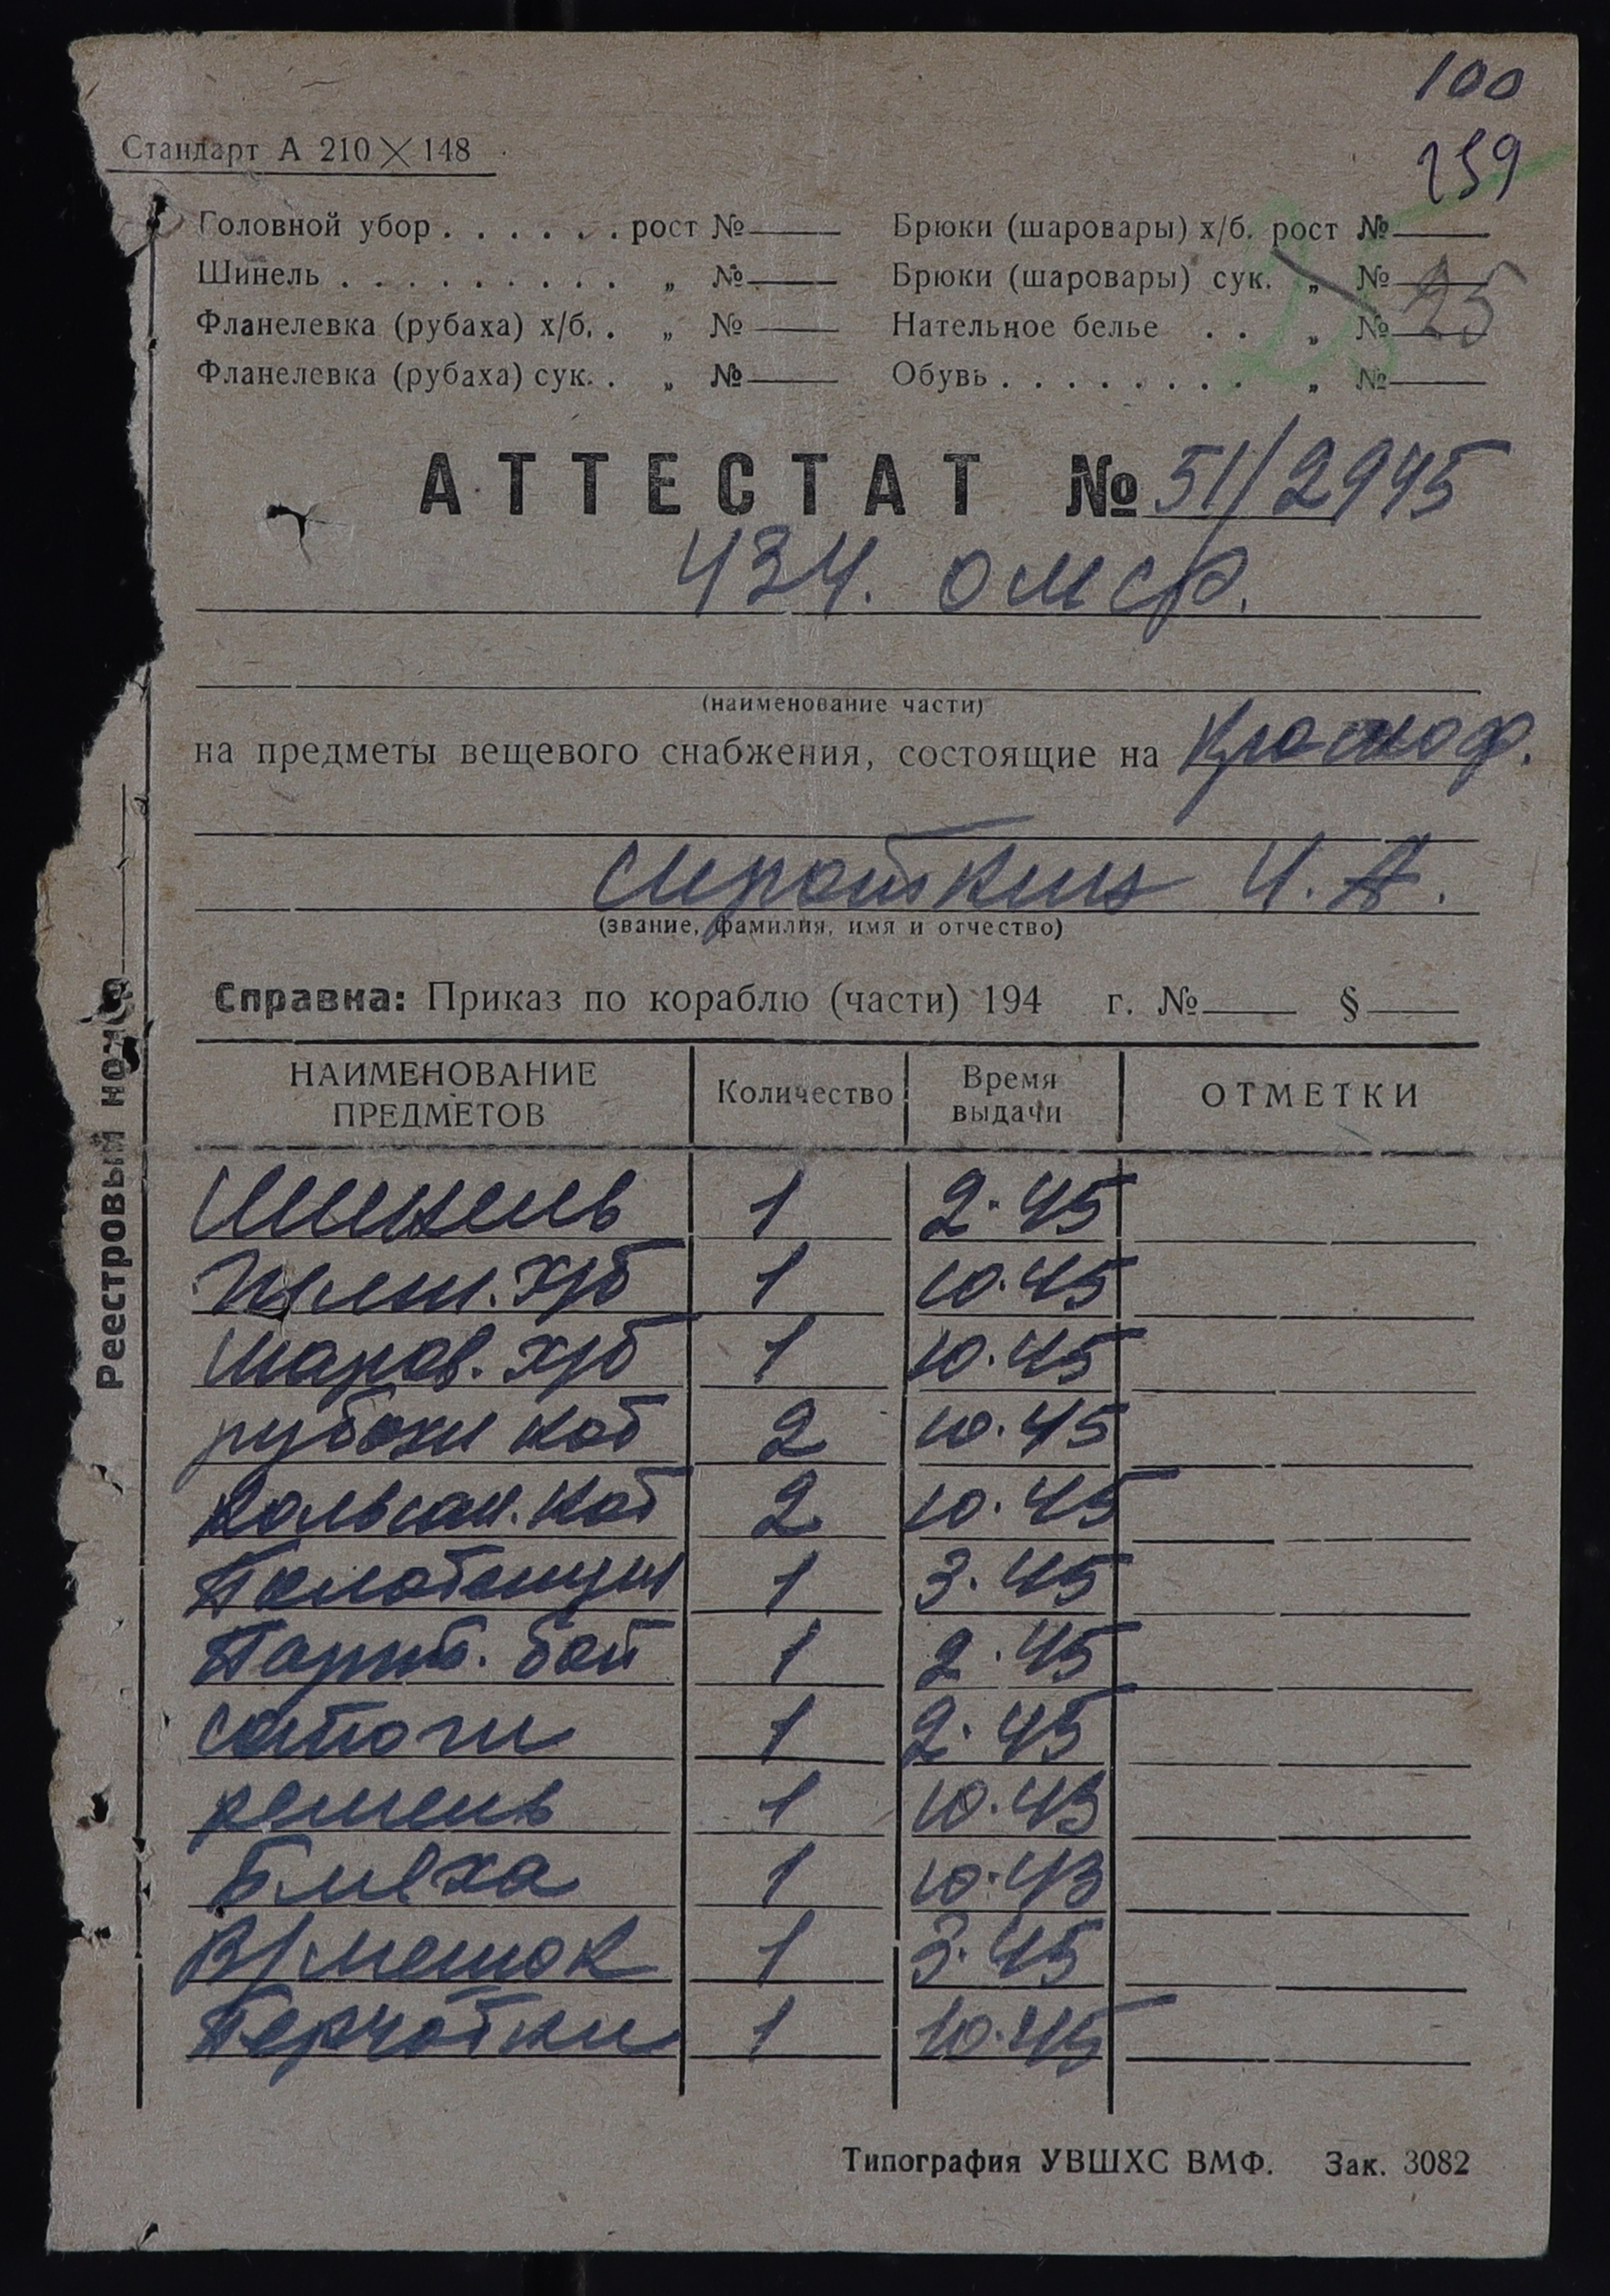 100
259
Стандарт А 210×148
Головной убор . . . . . . рост № Брюки (шаровары) х/б. рост №
Шинель . . . . . . . . . „ № Брюки (шаровары) сук. „ № 25
Фланелевка (рубаха) х/б. . „ № Нательное белье . . „ №
Фланелевка (рубаха) сук. . „ № Обувь . . . . . . . . „ №
АТТЕСТАТ № 51/2945
434. ОМСР.
(наименование части)
на предметы вещевого снабжения, состоящие на Красноф.
Сироткин И. А.
(звание, фамилия, имя и отчество)
Справка: Приказ по кораблю (части) 194 г. № §
НАИМЕНОВАНИЕ ПРЕДМЕТОВ Количество Время выдачи ОТМЕТКИ
Шинель 1 2.45
х/б 1 10.45
Шаров. х/б 1 10.45
рубахи наб 2 10.45
Кальсон. наб 2 10.45
Полотенцы 1 3.45
бай 1 2.45
сапоги 1 2.45
ремень 1 10.43
Бляха 1 10.43
В/мешок 1 3.45
Перчатки 1 10.45
Реестровый номер
Типография УВШХС ВМФ. Зак. 3082